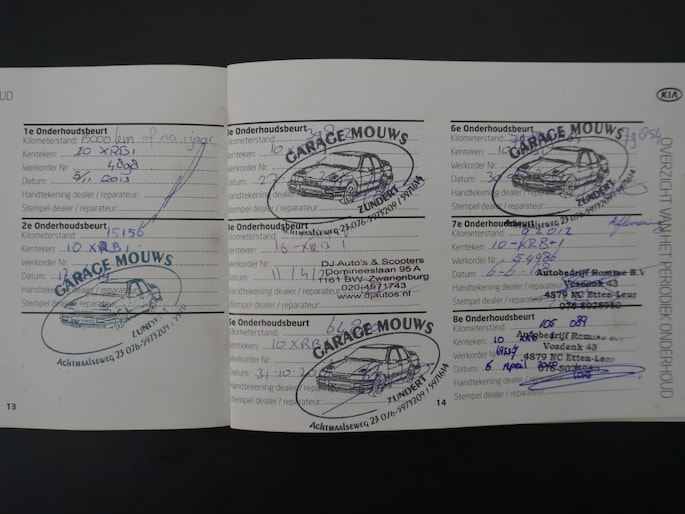 UD
1e Onderhoudsbeurt
Kilometerstand: 15000 km of na 1 jaar
Kenteken: 10 XRB 1
Werkorder Nr: 4898
Datum: 5/11 2013
Handtekening dealer / reparateur:
Stempel dealer / reparateur:
2e Onderhoudsbeurt
Kilometerstand: 15156
Kenteken: 10 XRB 1
Werkorder Nr:
Datum:
Handtekening dealer / reparateur:
Stempel dealer / reparateur:
GARAGE MOUWS
ZUNDERT
Achtmaalseweg 23 076-5975209 /
13
Onderhoudsbeurt
Kilometerstand:
Kenteken:
Werkorder Nr
Datum:
Handtekening dealer
Stempel dealer / reparateur:
GARAGE MOUWS
ZUNDERT
Achtmaalseweg 23 076-5975209 / 5971614
Onderhoudsbeurt
Kilometerstand:
Kenteken: XRB 1
Werkorder Nr:
Datum: 11/4/
Handtekening
Stempel dealer / reparateur:
DJ Auto's & Scooters
Domineeslaan 95 A
1161 BW Zwanenburg
020/4971743
www.djautos.nl
Onderhoudsbeurt
Kilometerstand:
Kenteken: 10 XRB
Werkorder Nr
Datum: 31-10-20
Handtekening dealer
Stempel dealer / reparateur:
GARAGE MOUWS
ZUNDERT
Achtmaalseweg 23 076-5975209 / 5971614
14
KIA
6e Onderhoudsbeurt
Kilometerstand: 79854
Kenteken: 10
Werkorder Nr
Datum:
Handtekening dealer
Stempel dealer / reparateur:
GARAGE MOUWS
ZUNDERT
Achtmaalseweg 23 076-5975209 / 5971614
7e Onderhoudsbeurt
Kilometerstand: 92012
Kenteken: 10-XRB-1
Werkorder Nr: 54986
Datum:
Handtekening dealer
Stempel dealer / reparateur:
Autobedrijf Romme B.V
Vosdonk 43
4879 NC Etten-Leur
8e Onderhoudsbeurt
Kilometerstand: 106 089
Kenteken: 10 XRB 1
Werkorder Nr
Datum: 6 April
Handtekening dealer
Stempel dealer / reparateur:
Autobedrijf Romme B.V
Vosdonk 43
4879 NC Etten-Leur
OVERZICHT VAN HET PERIODIEK ONDERHOUD